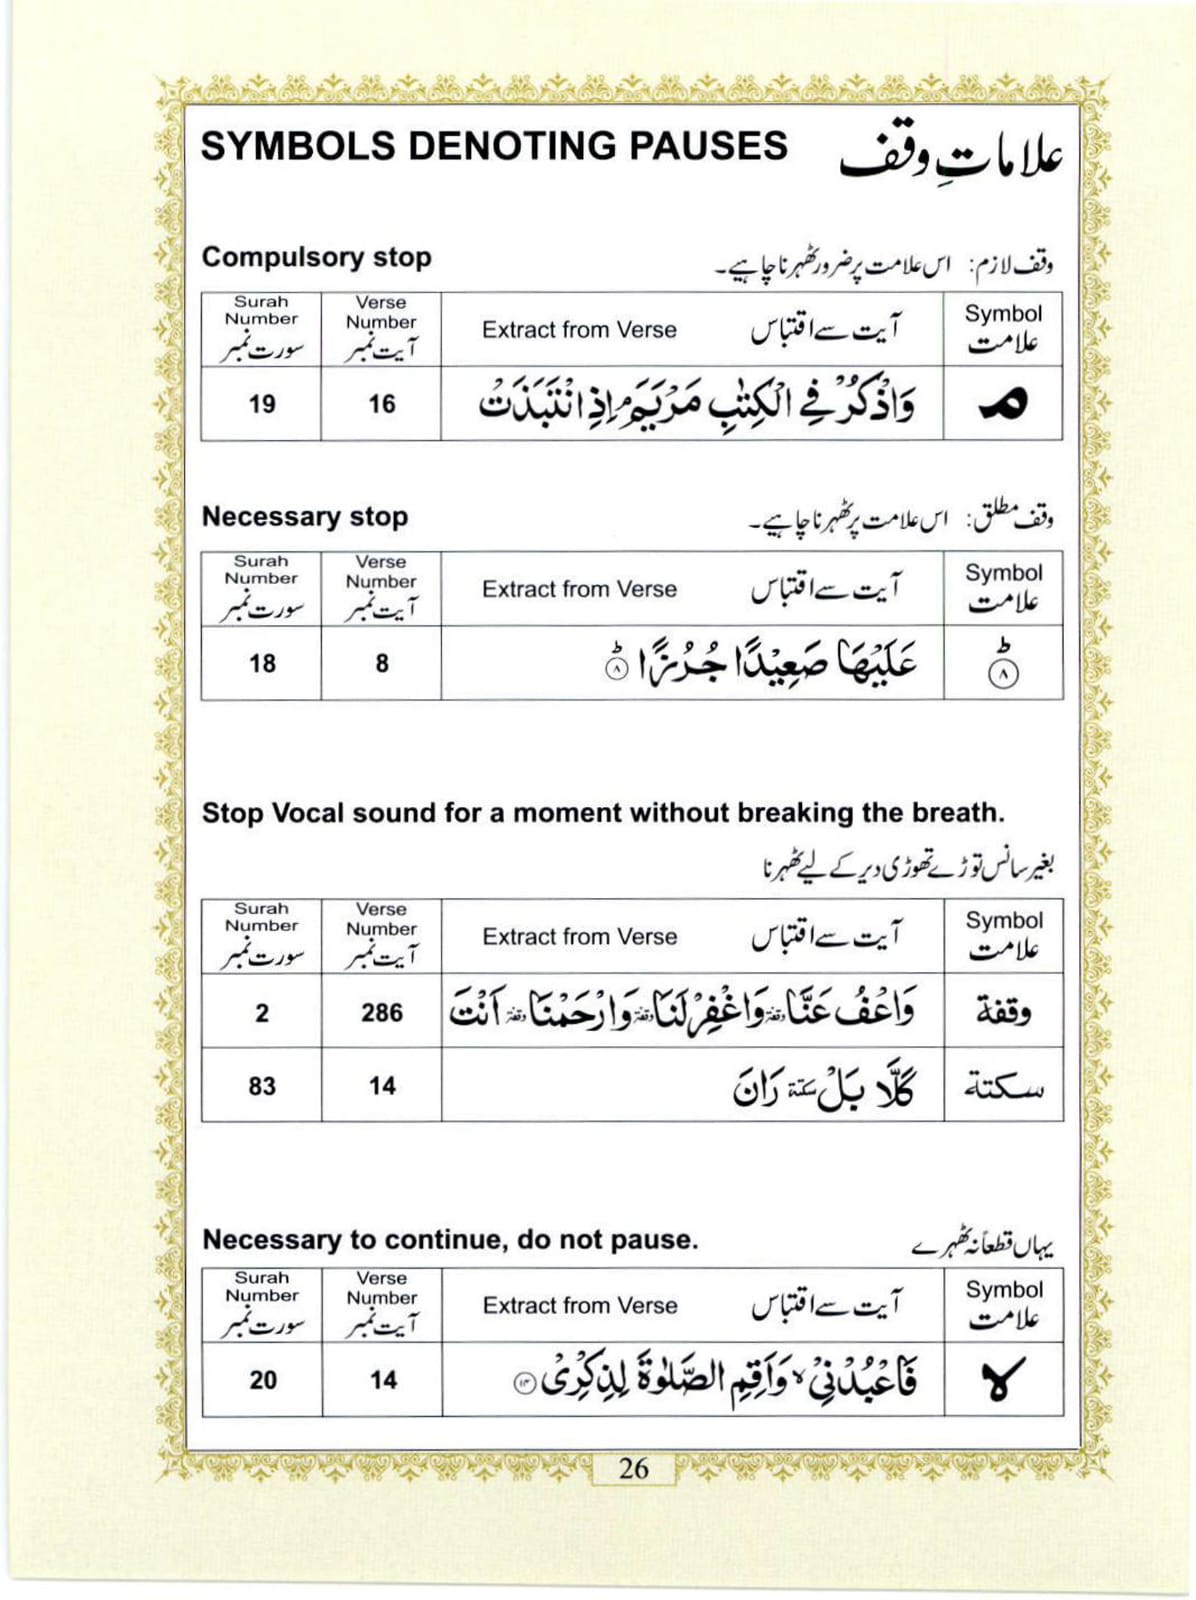 SYMBOLS DENOTING PAUSES علاماتِ وقف
Compulsory stop وقف لازم: اس علامت پر ضرور ٹھہرنا چاہیے۔
Surah Number سورت نمبر Verse Number آیت نمبر Extract from Verse آیت سے اقتباس Symbol علامت
19 16 وَاذْكُرْ فِی الْكِتٰبِ مَرْیَمَ ۘ اِذِ انْتَبَذَتْ مـ
Necessary stop وقف مطلق: اس علامت پر ٹھہرنا چاہیے۔
Surah Number سورت نمبر Verse Number آیت نمبر Extract from Verse آیت سے اقتباس Symbol علامت
18 8 عَلَیْهَا صَعِیْدًا جُرُزًا ؕ۝۸ ؕ۝۸
Stop Vocal sound for a moment without breaking the breath.
بغیر سانس توڑے تھوڑی دیر کے لیے ٹھہرنا
Surah Number سورت نمبر Verse Number آیت نمبر Extract from Verse آیت سے اقتباس Symbol علامت
2 286 وَاعْفُ عَنَّا وقفة وَاغْفِرْ لَنَا وقفة وَارْحَمْنَا وقفة اَنْتَ وقفة
83 14 كَلَّا بَلْ سكتة رَانَ سكتة
Necessary to continue, do not pause. یہاں قطعاً نہ ٹھہرے
Surah Number سورت نمبر Verse Number آیت نمبر Extract from Verse آیت سے اقتباس Symbol علامت
20 14 فَاعْبُدْنِیْ ۙ وَاَقِمِ الصَّلٰوةَ لِذِكْرِیْ ۝۱۴ لا
26